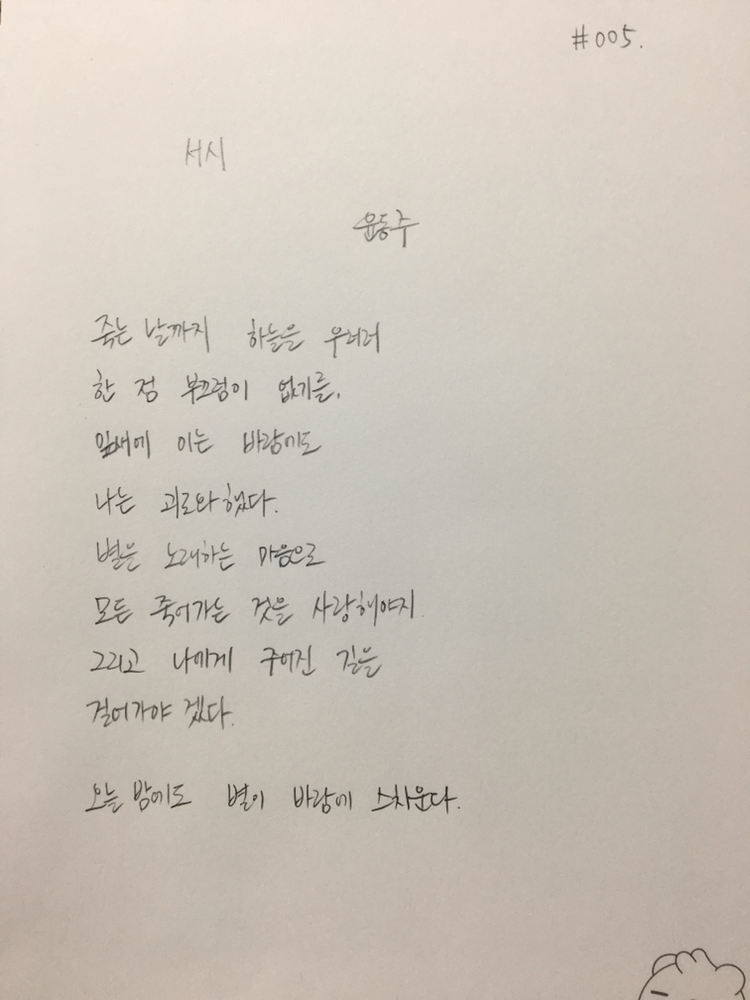 #005.
서시
윤동주
죽는 날까지 하늘을 우러러
한 점 부끄럼이 없기를,
잎새에 이는 바람에도
나는 괴로와했다.
별을 노래하는 마음으로
모든 죽어가는 것을 사랑해야지
그리고 나에게 주어진 길을
걸어가야겠다.
오늘 밤에도 별이 바람에 스치운다.